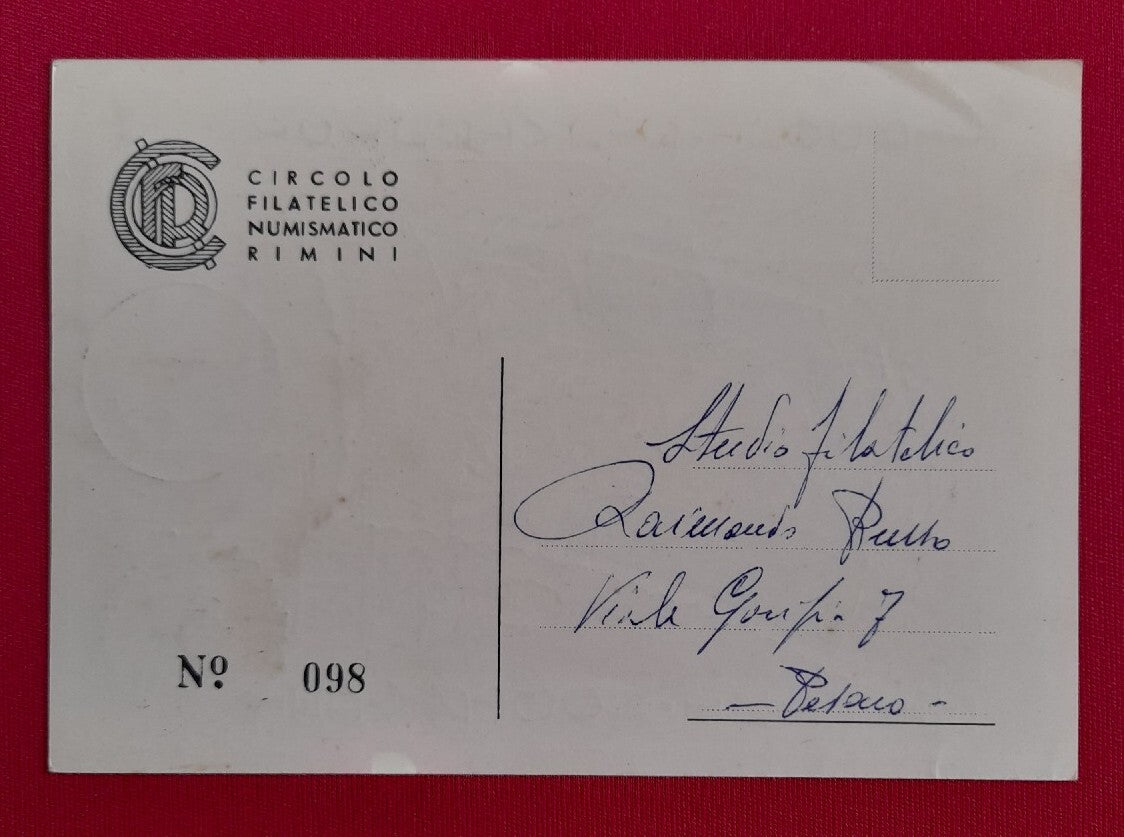 CIRCOLO
FILATELICO
NUMISMATICO
RIMINI
Studio filatelico
Raimondo Russo
Viale Gorizia 7
- Pesaro -
Nº 098